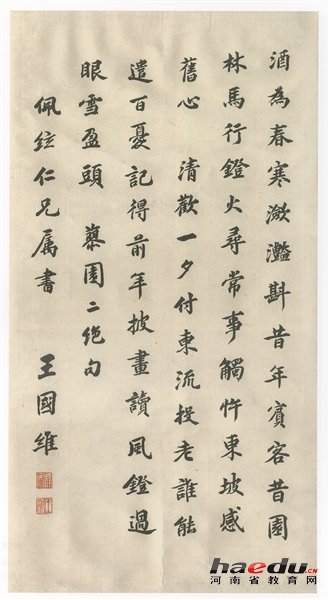 酒為春寒瀲灩斟昔年賓客昔園
林馬行鐙火尋常事觸忤東坡感
舊心 清歡一夕付東流投老誰能
遣百憂記得前年披畫讀風鐙過
眼雪盈頭 園二絕句
佩絃仁兄属書 王國維
haedu.CN
河南省教育网